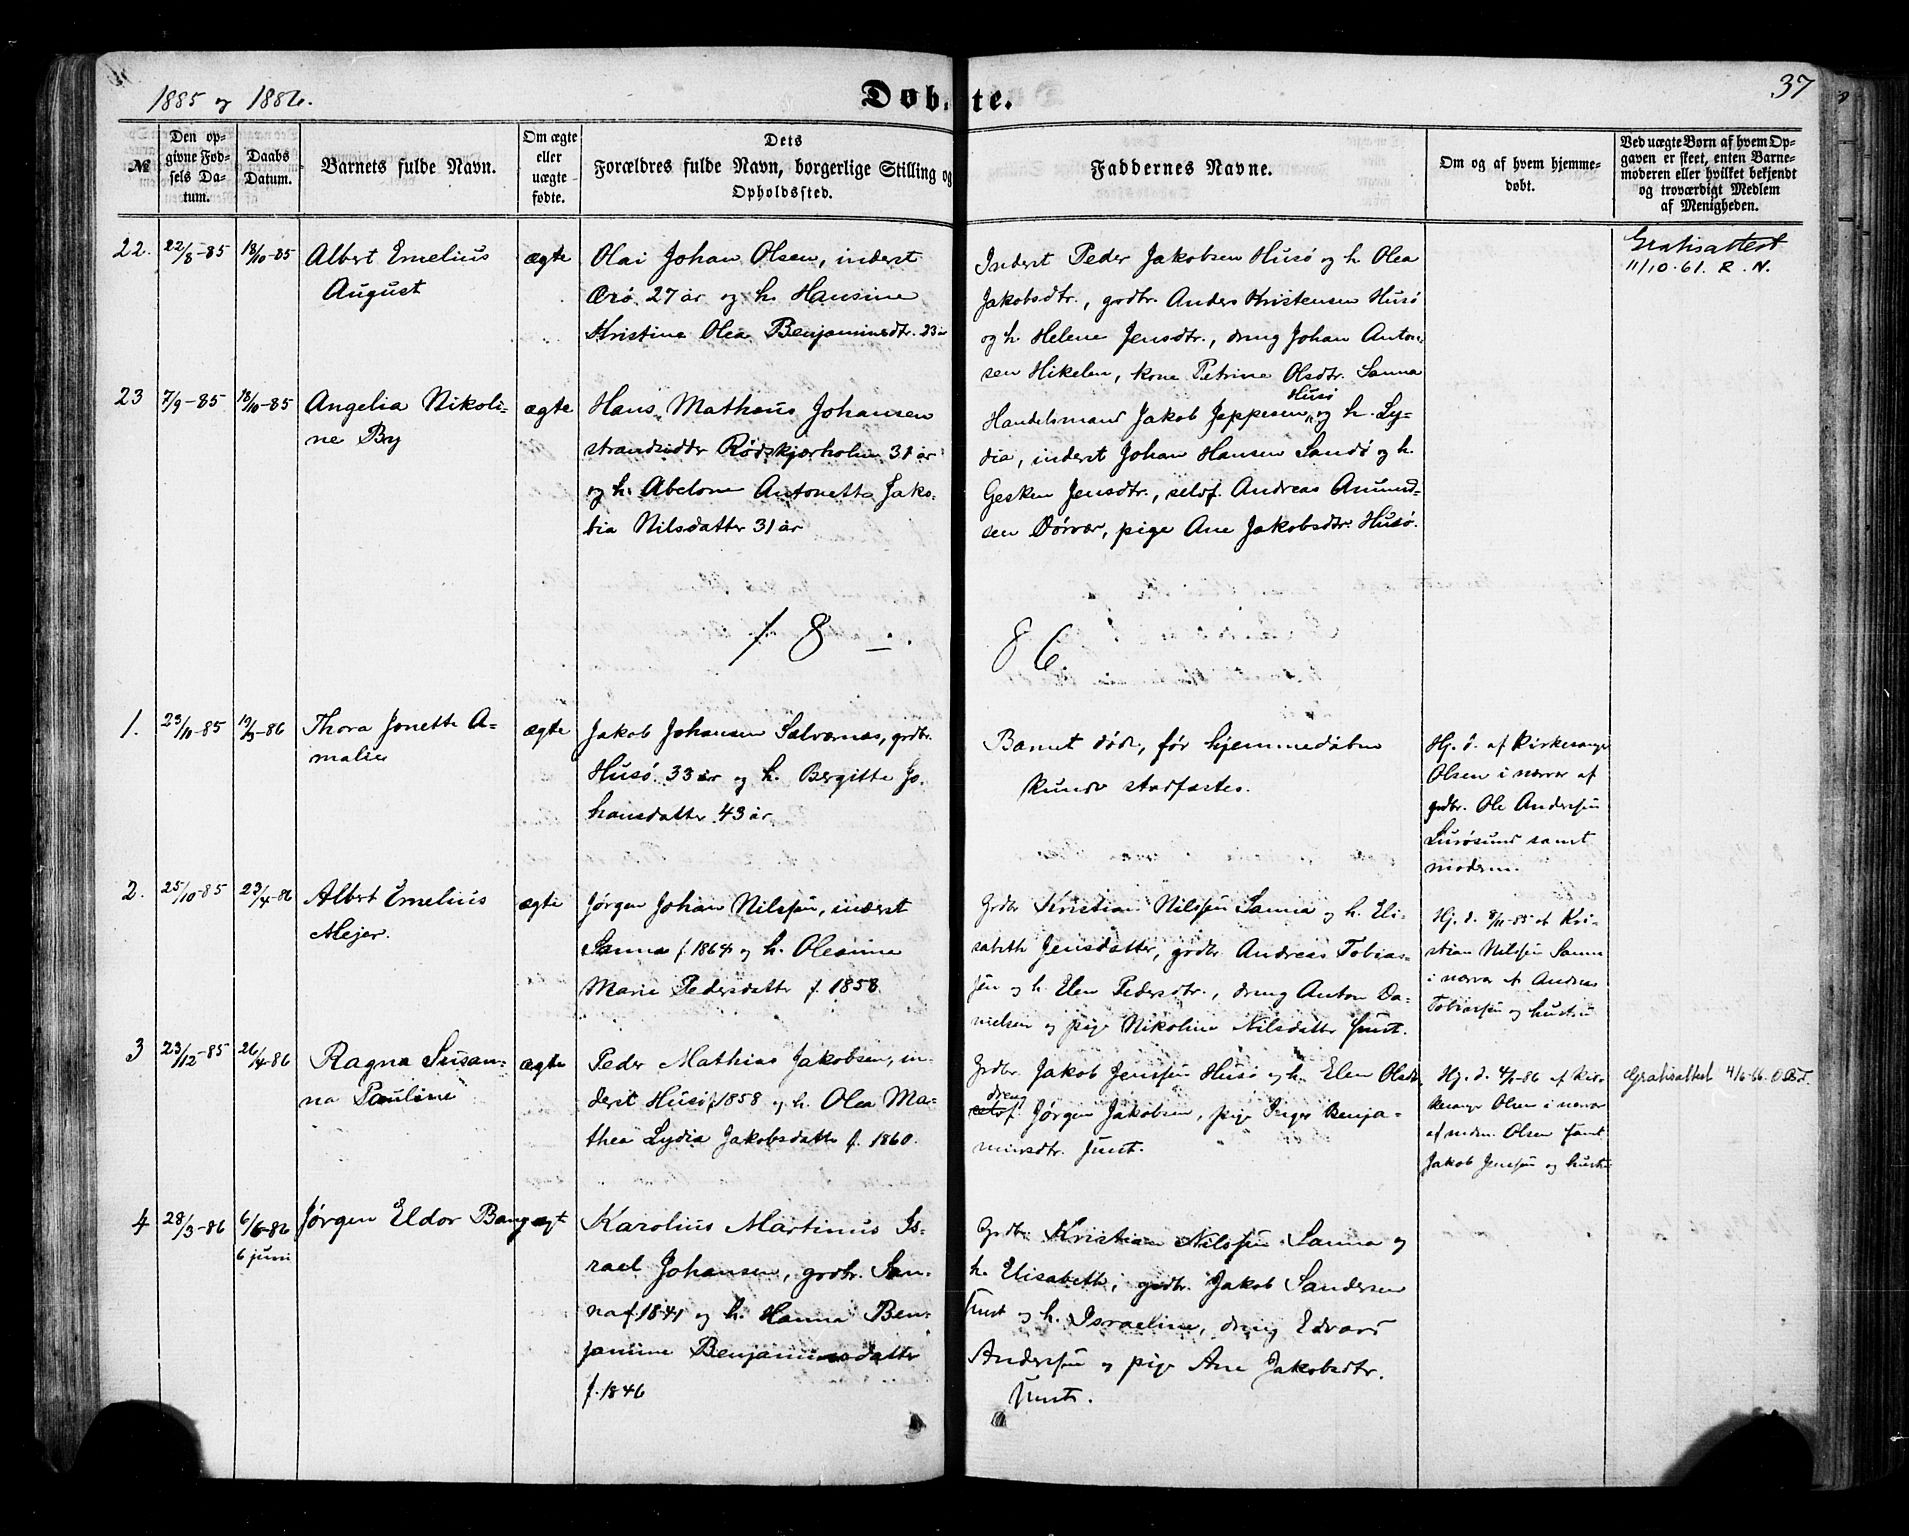 1885 og 1886.
Døbte.
37
№
Den op-
givne Fød-
sels Da-
tum.
Daabs
Datum.
Barnets fulde Navn.
Om ægte
eller
uægte
fødte.
Dets
Forældres fulde Navn, borgerlige Stilling og
Opholdssted.
Faddernes Navne.
Om og af hvem hjemme-
døbt.
Ved uægte Børn af hvem Op-
gaven er skeet, enten Barne-
moderen eller hvilket bekjendt
og troværdigt Medlem
af Menigheden.
22.
22/8-85
18/10-85
Albert Emelius
August
ægte
Olai Johan Olsen, inderst
27 år og h. Hansine
Kristine Olea Benjaminsdtr. 23 år
Inderst Peder Jakobsen Husö og h. Olea
Jakobsdtr., gdbr. Anders Kristensen Husö
og h. Helene Jensdtr., dreng Johan Anton-
sen Hikelen, kone Petrine Olsdtr. Sanna
Gratisattest
11/10-61. R. N.
23
7/9-85
18/10-85
Angelia Nikoli-
ne By
ægte
Hans Mathæus Johansen
strandsidder Rødskjærholm 31 år
og h. Abelone Antonette Jako-
bia Nilsdatter 31 år
Husö
Handelsmand Jakob Jeppesen og h. Ly-
dia, inderst Johan Hansen Sandö og h.
Gesken Jensdtr., selvf. Andreas Amund-
sen Dörvær, pige Ane Jakobsdtr. Husö.
18
86.
1.
23/11-85
19/3-86
Thora Jonette A-
malie
ægte
Jakob Johansen Selvornæs, grdbr.
Husö. 33 år og h. Bergitte Jo-
hansdatter 43 år
Barnet döde, för hjemmedåben
kunde stadfæstes.
Hj. d. af Kirkesanger
Olsen i nærvær af
grdbr. Ole Anderssen
Luröesund samt
moderen.
2.
25/10-85
23/4-86
Albert Emelius
Mejer.
ægte
Jörgen Johan Nilssen, inderst
Sanna f. 1864 og h. Oleanna
Marie Pedersdatter f. 1858.
Grdbr Kristian Nilssen Sanna og h. Eli-
sabeth Jensdatter, gdbr. Andreas Tobias-
sen og h. Elen Pedersdtr., dreng Anton Da-
nielsen og pige Nikoline Nilsdatter smst.
Hj. d. 8/11-85 af Kri-
stian Nilssen Sanna
i nærvær af Andreas
Tobiassen og hustru
3
23/12-85
26/4-86
Ragna Susan-
na Pauline
ægte
Peder Mathias Jakobsen, in-
derst Husö f. 1858 og h. Olea Ma-
thea Lydia Jakobsdatter f. 1860.
Grdbr. Jakob Jenssen Husö og h. Elen Olsdtr,
dreng
selvf. Jörgen Jakobsen, pige Inger Benja-
minsdtr. smst.
Hj. d. 4/1-86 af Kir-
kesanger Olsen i nærvær
af mdm. Olsen samt
Jakob Jenssen og hustru
Gratisattest 4/6-66. O.B.T.
4
28/3-86
6/6-86
6 juni
Jörgen Eldor Bang
ægte
Karolius Martinus Is-
rael Johansen, grdbr. San-
na f. 1841 og h. Hanna Ben-
jamine Benjaminsdatter
f. 1846
Grdbr. Kristian Nilssen Sanna og
h. Elisabeth, grdbr. Jakob Sandersen
smst og h. Israeline, dreng Edvard
Anderssen og pige Ane Jakobsdtr.
smst.